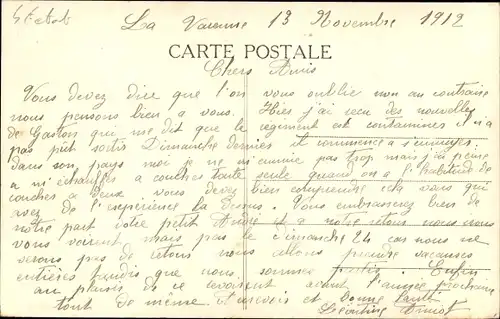 La Varenne 13 Novembre 1912
CARTE POSTALE
Chers Amis
Vous devez dire que l'on vous oublie non au contraire
nous pensons bien a vous. Hier j'ai recu des nouvelles
de Gaston qui me dit que le regiment est contaminer il n'a
pas pêt sortir Dimanche dernier et commence a s'ennuyer
dans son pays moi je ne m'ennuie pas trop mais je pense
a m'échapler a coucher tarte seule quand on a l'habitude de
coucher a deux vous devez bien comprendre cela vous qui
avez de l'expérience la dessus. Vous embrasserez bien de
notre part votre petit André et a notre retour nous irons
vous voir mais pas le dimanche 24 car nous ne
serons pas de retour nous allons prendre vacances
entières tandis que nous sommes partis. Enfin
au plaisir de ce revoir avant l'année prochaine
tout de même. Au revoir et bonne santé
Léontine